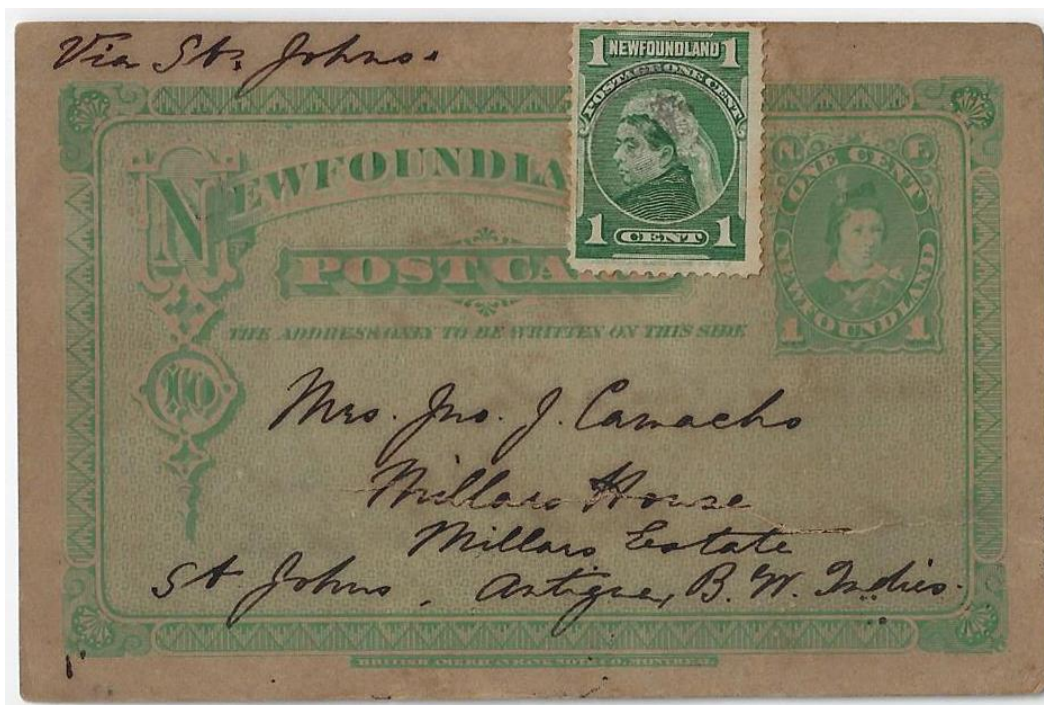 Via St. Johns.
1 NEWFOUNDLAND 1
POSTAGE ONE CENT
1 CENT 1
N. F.
ONE CENT
NEWFOUNDLAND
1 1
NEWFOUNDLA
POST CAR
THE ADDRESS ONLY TO BE WRITTEN ON THIS SIDE
TO
Mrs. Jno. J. Camacho
Millars House
Millars Estate
St Johns, Antigua, B. W. Indies.
BRITISH AMERICAN BANK NOTE CO. MONTREAL.